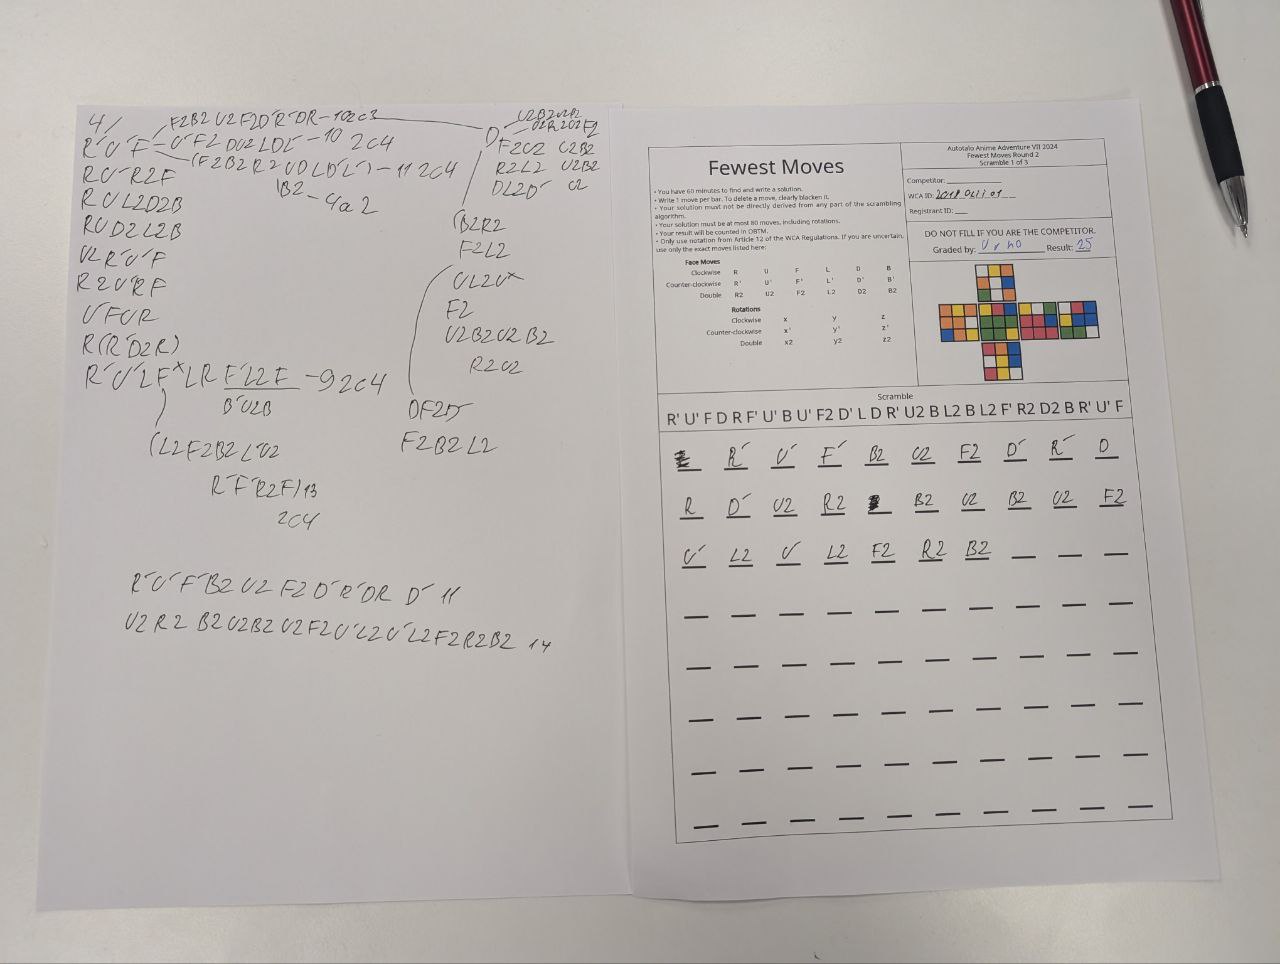 4/
F2B2U2F2D'R'DR-10 2c3
R'U'F' - U'F2DU2LDL'-10 2C4
(F2B2R2UDLD'L')-11 2C4
B2-4a2
RU'R2F
RUL2D2B
RUD2L2B
U2R'U'F
R2U'RF
U'FUR
R(R'D2R)
R'U'LF*LRF'L2F-9 2C4
B'U2B
(L2F2B2L'U2
R'F'R2F)13
2C4
U2B2U2R2
D' U2R2U2F2
F2U2 U2B2
R2L2 U2B2
DL2D' U2
(B2R2
F2L2
UL2U*
F2
U2B2U2B2
R2U2
DF2D'
F2B2L2
R'U'F'B2U2F2D'R'DR D' 11
U2R2 B2U2B2U2F2U'L2U'L2F2R2B2 14
Fewest Moves
• You have 60 minutes to find and write a solution.
• Write 1 move per bar. To delete a move, clearly blacken it.
• Your solution must not be directly derived from any part of the scrambling
algorithm.
• Your solution must be at most 80 moves, including rotations.
• Your result will be counted in OBTM.
• Only use notation from Article 12 of the WCA Regulations. If you are uncertain,
use only the exact moves listed here:
Face Moves
Clockwise R U F L D B
Counter-clockwise R' U' F' L' D' B'
Double R2 U2 F2 L2 D2 B2
Rotations
Clockwise x y z
Counter-clockwise x' y' z'
Double x2 y2 z2
Autotalo Anime Adventure VII 2024
Fewest Moves Round 2
Scramble 1 of 3
Competitor:
WCA ID:
Registrant ID:
DO NOT FILL IF YOU ARE THE COMPETITOR.
Graded by: Urho Result: 25
Scramble
R' U' F D R F' U' B U' F2 D' L D R' U2 B L2 B L2 F' R2 D2 B R' U' F
R' U' F' B2 U2 F2 D' R' D
R D' U2 R2 B2 U2 B2 U2 F2
U' L2 U' L2 F2 R2 B2